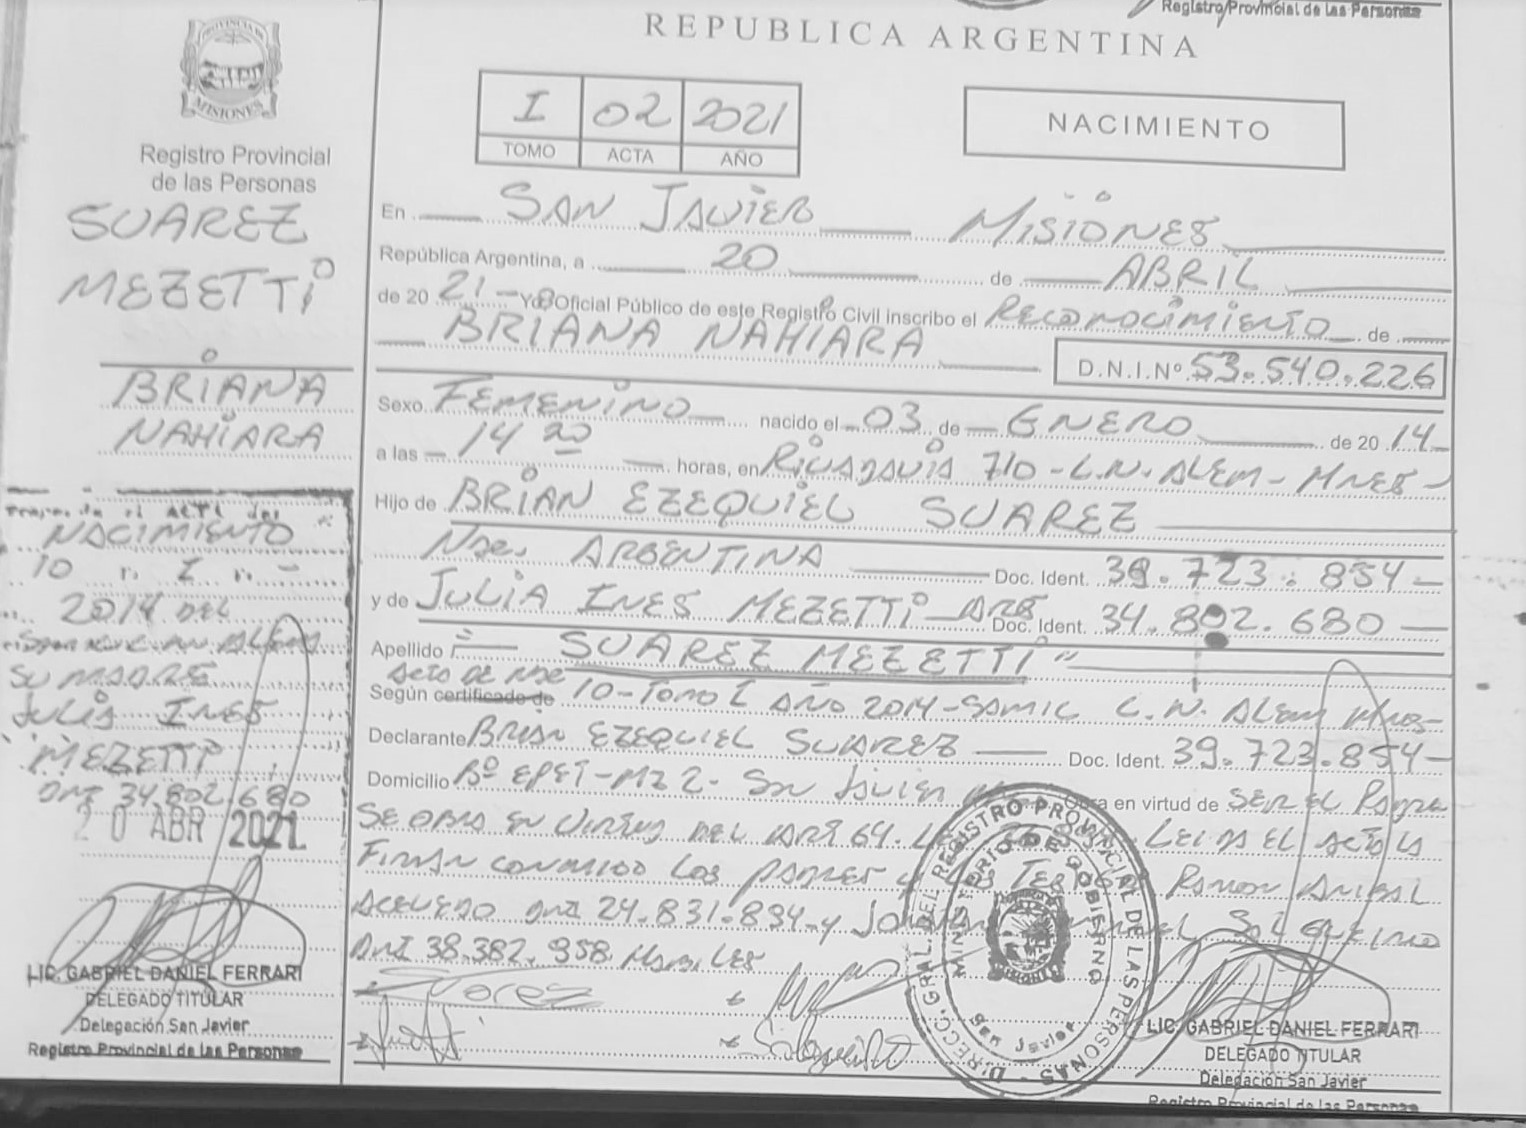 Registro Provincial de las Personas
REPUBLICA ARGENTINA
PROVINCIA DE
MISIONES
Registro Provincial
de las Personas
SUAREZ
MEZETTI
BRIANA
NAHIARA
I 02 2021
TOMO ACTA AÑO
NACIMIENTO
En SAN JAVIER MISIONES
República Argentina, a 20 de ABRIL
de 20 21 - Yo Oficial Público de este Registro Civil inscribo el RECONOCIMIENTO de
BRIANA NAHIARA D.N.I.Nº 53.540.226
Sexo FEMENINO nacido el 03 de ENERO de 20 14
a las 14 20 horas, en RIVADAVIA 710 - L.N. ALEM - MNES -
Hijo de BRIAN EZEQUIEL SUAREZ
Nac. ARGENTINA Doc. Ident. 39.723.854 -
y de JULIA INES MEZETTI - ARG Doc. Ident. 34.802.680 -
Apellido SUAREZ MEZETTI
ACTA DE NAC
Según certificado de 10 - TOMO I AÑO 2014 - SAMIC L.N. ALEM MNES -
Declarante BRIAN EZEQUIEL SUAREZ Doc. Ident. 39.723.854 -
Domicilio Bº EPET - MZ 2 - San Javier Obra en virtud de SER EL PADRE
SE OBRA EN VIRTUD DEL ART 64. LEIDA EL ACTA LA
FIRMAN CONMIGO LOS PADRES Y LOS TESTIGOS RAMON ANIBAL
ACEVEDO DNI 24.831.894 - y
DNI 38.382.958 HABILES
Suarez
NACIMIENTO
10 T. I
2014 DEL
SU MADRE
JULIA INES
MEZETTI
DNI 34.802.680
20 ABR 2021
LIC. GABRIEL DANIEL FERRARI
DELEGADO TITULAR
Delegación San Javier
Registro Provincial de las Personas
DIRECC. GRAL. DEL REGISTRO PROVINCIAL DE LAS PERSONAS
MINISTERIO DE GOBIERNO
San Javier
LIC. GABRIEL DANIEL FERRARI
DELEGADO TITULAR
Delegación San Javier
Registro Provincial de las Personas